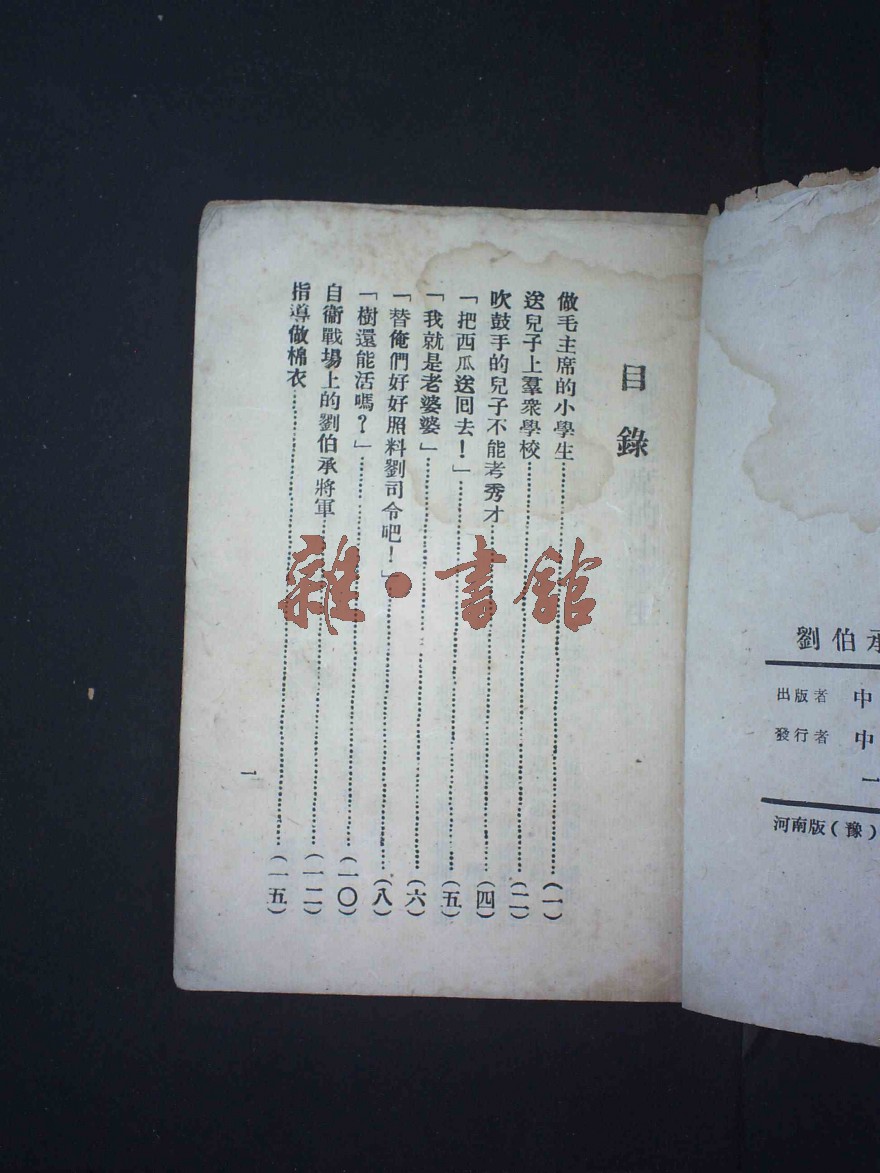 目錄
做毛主席的小學生……(一)
送兒子上羣衆學校……(二)
吹鼓手的兒子不能考秀才……(四)
「把西瓜送囘去！」……(五)
「我就是老婆婆」……(六)
「替俺們好好照料劉司令吧！」……(八)
「樹還能活嗎？」……(一〇)
自衞戰場上的劉伯承將軍……(一二)
指導做棉衣……(一五)
一
雜·書館
劉伯承
出版者 中
發行者 中
一
河南版(豫)